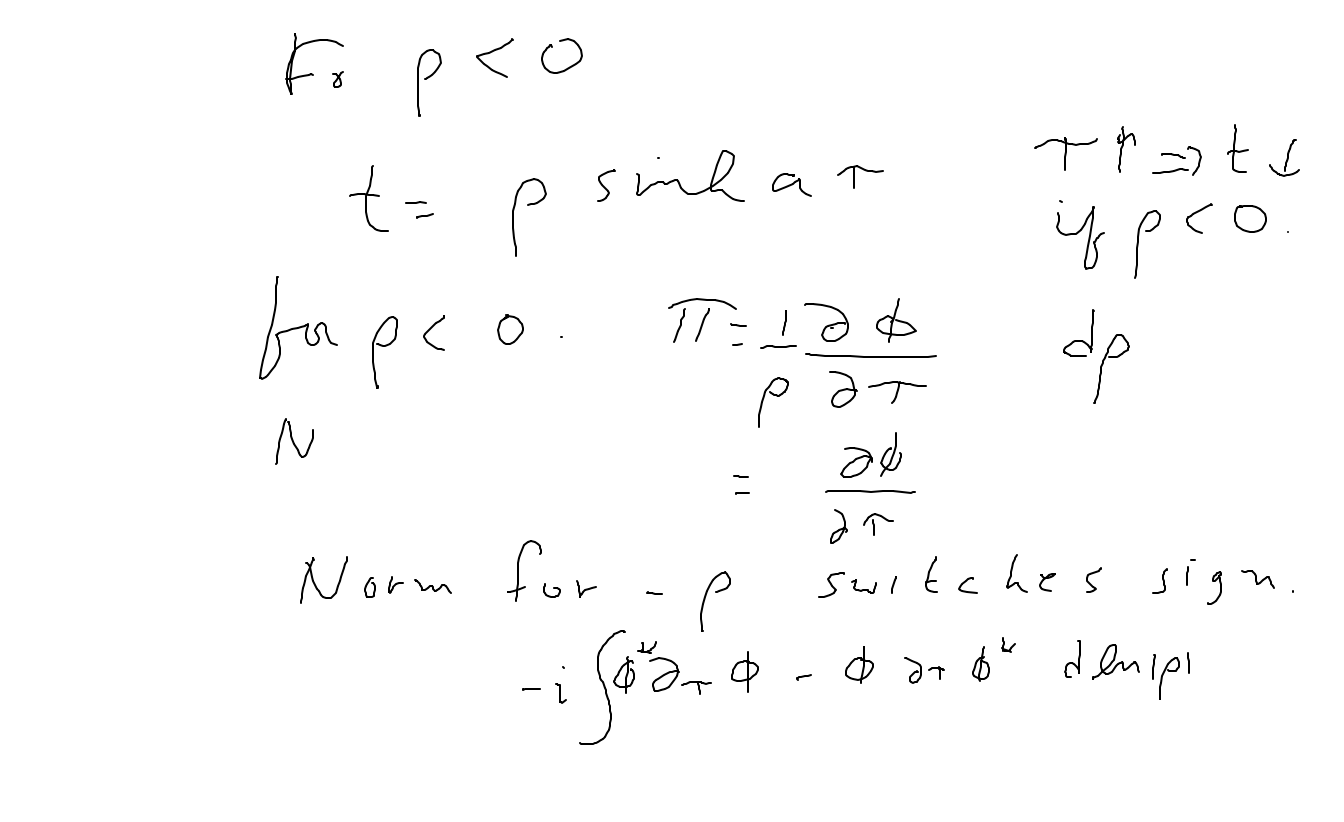 For ρ < 0
t = ρ sinh a τ
τ ↑ ⇒ t ↓
if ρ < 0.
for ρ < 0. Π = 1/ρ ∂ϕ/∂τ dρ
N
= ∂ϕ/∂τ
Norm for -ρ switches sign.
-i ∫ϕ* ∂τ ϕ - ϕ ∂τ ϕ* d ln|ρ|